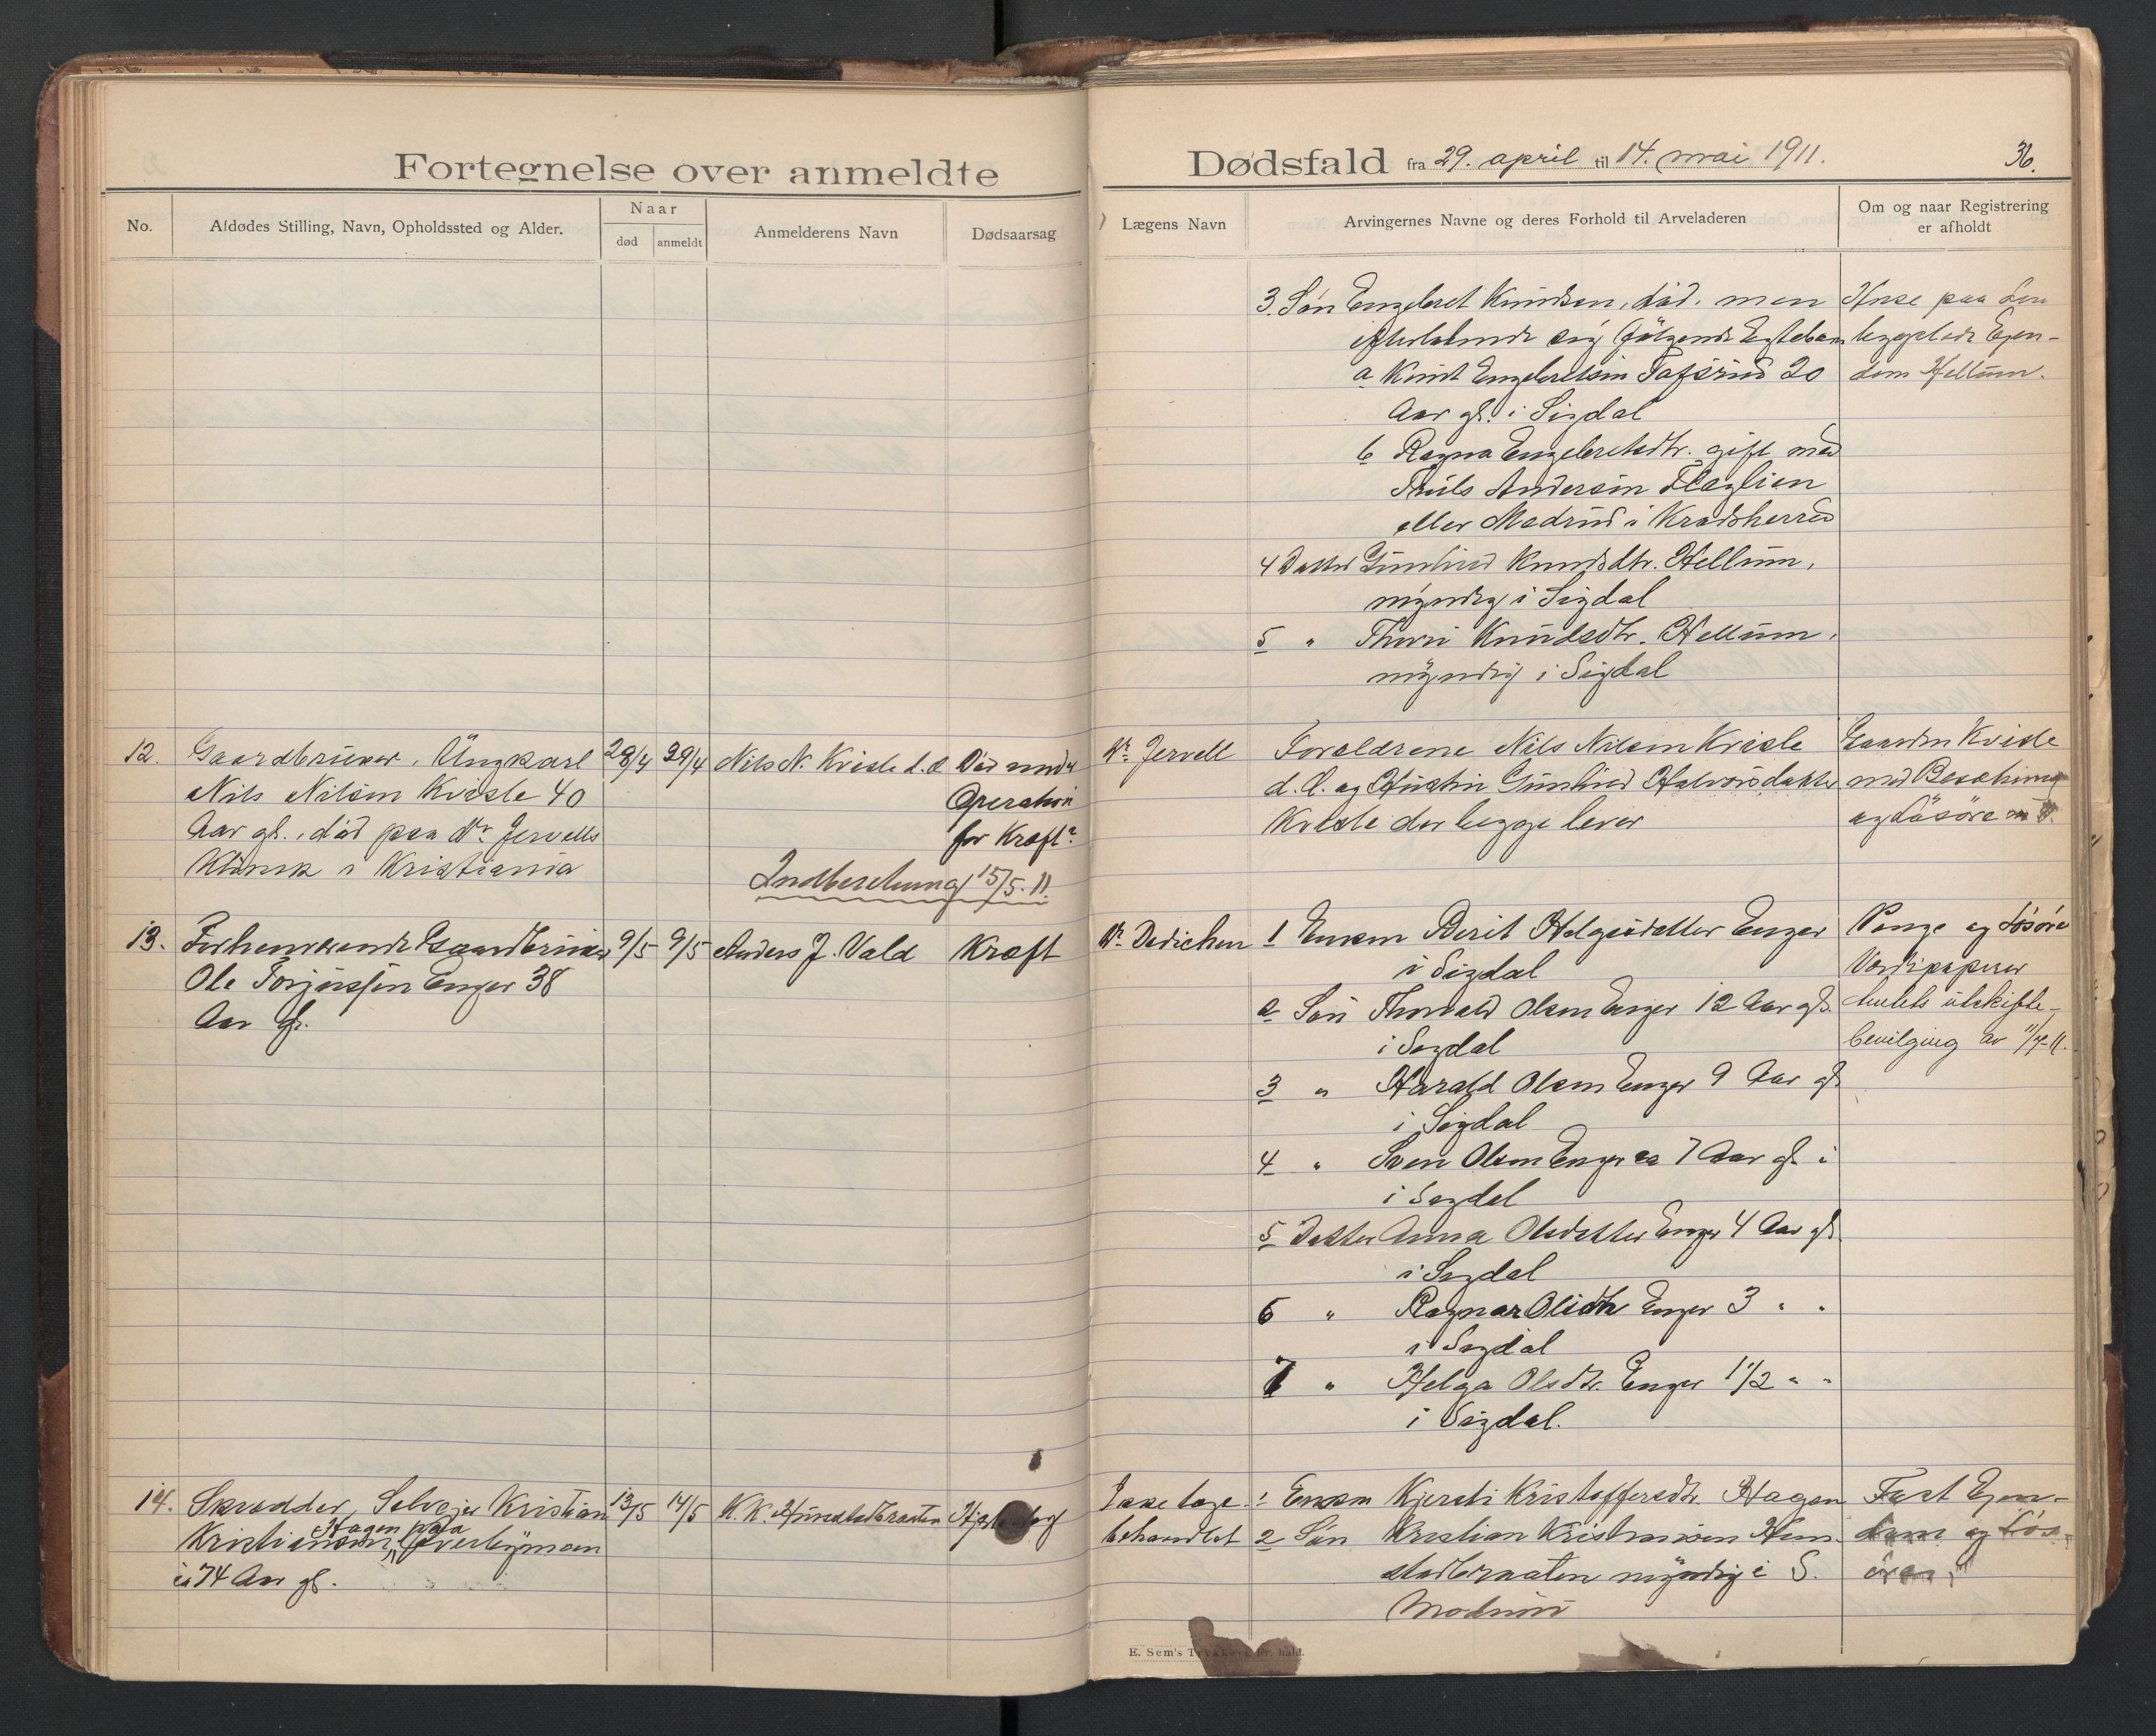 Fortegnelse over anmeldte
Dødsfald fra 29. april til 14. mai 1911.
36.
No.
Afdødes Stilling, Navn, Opholdssted og Alder.
Naar
død
anmeldt
Anmelderens Navn
Dødsaarsag
Lægens Navn
Arvingernes Navne og deres Forhold til Arveladeren
Om og naar Registrering
er afholdt
3. Søn Engebret Knudsen, död, men
efterladende sig følgende Egtebarn
a Knut Engebretsen 20
Aar gl. i Sigdal
b Ragna Engebretsdtr. gift med
Truls Andersen Flaglien
eller Medrud i Kradsherred
4 Datter Gunhild Knudsdtr. Hellum,
myndig i Sigdal
5 " Thori Knudsdtr. Hellum,
myndig i Sigdal
Huse paa den
bygslede Ejen-
dom Hellum.
12.
Gaardbruker, Ungkarl
Nils Nilsen Kvisle 40
Aar gl., död paa Dr. Jervells
Klinik i Kristiania
28/4
29/4
Nils N. Kvisle d. æ
Död under
Operation
for Kræft
Indberetning 15/5. 11.
Dr. Jervell
Forældrene Nils Nilsen Kvisle
d. æ. og Hustru Gunhild Halvorsdatter
Kvisle der begge lever
Gaarden Kvisle
med Besetning
og Løsøre
13.
Forhenværende Gaardbruker
Ole Torjussen Enger 38
Aar gl.
9/5
9/5
Anders J. Vald
Kræft
Dr. Dedichen
1 Enken Berit Helgesdatter Enger
i Sigdal
2 Søn Thorvald Olsen Enger 12 Aar gl.
i Sigdal
3 " Harald Olsen Enger 9 Aar gl.
i Sigdal
4 " Sven Olsen Enger ca 7 Aar gl. i
i Sigdal
5 Datter Anna Olsdatter Enger 4 Aar gl.
i Sigdal
6 " Ragna Olsdtr Enger 3 " "
i Sigdal
7 " Helga Olsdtr. Enger 1 1/2 " "
i Sigdal.
Penge og Løsøre
Verdipapirer
uskifte-
bevilging av 11/7-11.
14.
Skrædder, Selvejer Kristian
Kristiansen Hagen paa Overbymoen
74 Aar gl.
13/5
14/5
K. K. Hunstadbraaten
Ikke læge-
behandlet
1 Enken Kjersti Kristoffersdtr. Hagen
2 Søn Kristian Kristiansen Hun-
stadbraaten myndig i S.
Modum
Fast Ejen-
dom og Løs-
øre
E. Sem's Trykkeri, Fr. hald.